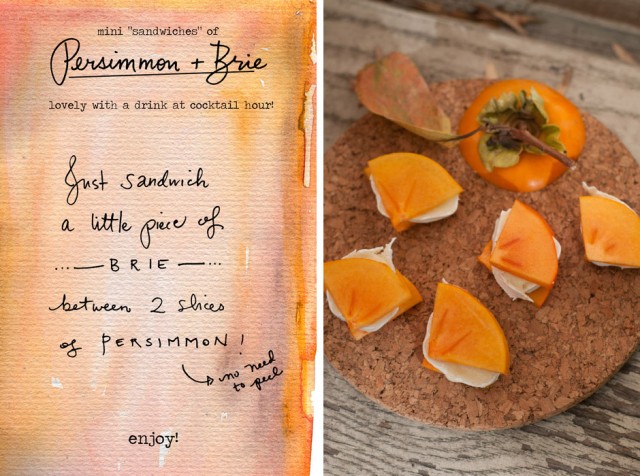 mini "sandwiches" of
Persimmon + Brie
lovely with a drink at cocktail hour!
Just sandwich
a little piece of
...— BRIE —...
between 2 slices
of PERSIMMON!
no need
to peel
enjoy!